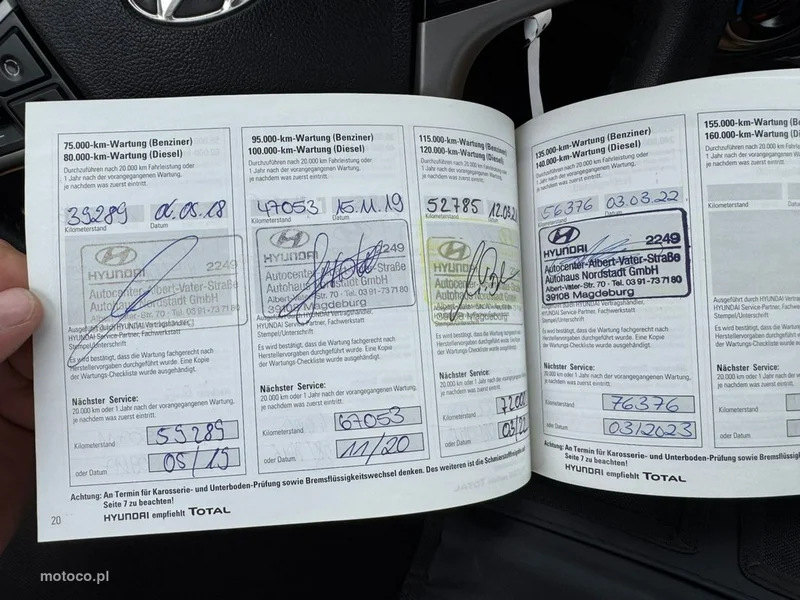 75.000-km-Wartung (Benziner)
80.000-km-Wartung (Diesel)
Durchzuführen nach 20.000 km Fahrleistung oder
1 Jahr nach der vorangegangenen Wartung,
je nachdem was zuerst eintritt.
39289 04.05.18
Kilometerstand Datum
HYUNDAI 2249
Autocenter-Albert-Vater-Straße
Autohaus Nordstadt GmbH
Albert-Vater-Str. 70 · Tel. 03 91-73 71 80
Ausgeführt durch HYUNDAI Vertragshändler,
HYUNDAI Service-Partner, Fachwerkstatt
Stempel/Unterschrift
Es wird bestätigt, dass die Wartung fachgerecht nach
Herstellervorgaben durchgeführt wurde. Eine Kopie
der Wartungs-Checkliste wurde ausgehändigt.
Nächster Service:
20.000 km oder 1 Jahr nach der vorangegangenen Wartung,
je nachdem was zuerst eintritt.
Kilometerstand 59289
oder Datum 05/19
95.000-km-Wartung (Benziner)
100.000-km-Wartung (Diesel)
Durchzuführen nach 20.000 km Fahrleistung oder
1 Jahr nach der vorangegangenen Wartung,
je nachdem was zuerst eintritt.
47053 15.11.19
Kilometerstand Datum
HYUNDAI 2249
Autocenter-Albert-Vater-Straße
Autohaus Nordstadt GmbH
Albert-Vater-Str. 70 · Tel. 03 91-73 71 80
39108 Magdeburg
Ausgeführt durch HYUNDAI Vertragshändler,
HYUNDAI Service-Partner, Fachwerkstatt
Stempel/Unterschrift
Es wird bestätigt, dass die Wartung fachgerecht nach
Herstellervorgaben durchgeführt wurde. Eine Kopie
der Wartungs-Checkliste wurde ausgehändigt.
Nächster Service:
20.000 km oder 1 Jahr nach der vorangegangenen Wartung,
je nachdem was zuerst eintritt.
Kilometerstand 67053
oder Datum 11/20
115.000-km-Wartung (Benziner)
120.000-km-Wartung (Diesel)
Durchzuführen nach 20.000 km Fahrleistung oder
1 Jahr nach der vorangegangenen Wartung,
je nachdem was zuerst eintritt.
52785
Kilometerstand Datum
HYUNDAI
Autocenter-Albert-Vater-Straße
Autohaus Nordstadt GmbH
39108 Magdeburg
Stempel/Unterschrift
Es wird bestätigt, dass die Wartung fachgerecht nach
Herstellervorgaben durchgeführt wurde. Eine Kopie
der Wartungs-Checkliste wurde ausgehändigt.
Nächster Service:
20.000 km oder 1 Jahr nach der vorangegangenen Wartung,
je nachdem was zuerst eintritt.
Kilometerstand
oder Datum
Achtung: An Termin für Karosserie- und Unterboden-Prüfung sowie Bremsflüssigkeitswechsel denken. Des weiteren ist die
Seite 7 zu beachten!
20
HYUNDAI empfiehlt TOTAL
135.000-km-Wartung (Benziner)
140.000-km-Wartung (Diesel)
Durchzuführen nach 20.000 km Fahrleistung oder
1 Jahr nach der vorangegangenen Wartung,
je nachdem was zuerst eintritt.
56376 03.03.22
Kilometerstand Datum
HYUNDAI 2249
Autocenter-Albert-Vater-Straße
Autohaus Nordstadt GmbH
Albert-Vater-Str. 70 · Tel. 03 91-73 71 80
39108 Magdeburg
Ausgeführt durch HYUNDAI Vertragshändler,
HYUNDAI Service-Partner, Fachwerkstatt
Stempel/Unterschrift
Es wird bestätigt, dass die Wartung fachgerecht nach
Herstellervorgaben durchgeführt wurde. Eine Kopie
der Wartungs-Checkliste wurde ausgehändigt.
Nächster Service:
20.000 km oder 1 Jahr nach der vorangegangenen Wartung,
je nachdem was zuerst eintritt.
Kilometerstand 76376
oder Datum 03/2023
155.000-km-
160.000-km-
Durchzuführen nach 20.000
1 Jahr nach der
je nachdem was zuerst
Kilometerstand
Ausgeführt durch
HYUNDAI Service-Partner,
Stempel/Unterschrift
Es wird bestätigt, dass
Herstellervorgaben
der Wartungs-Checkliste
Nächster Service:
20.000 km oder 1 Jahr
je nachdem was zuerst
Kilometerstand
oder Datum
Achtung: An Termin für Karosserie- und Unterboden-Prüfung sowie
Seite 7 zu beachten!
HYUNDAI empfiehlt TOTAL
motoco.pl